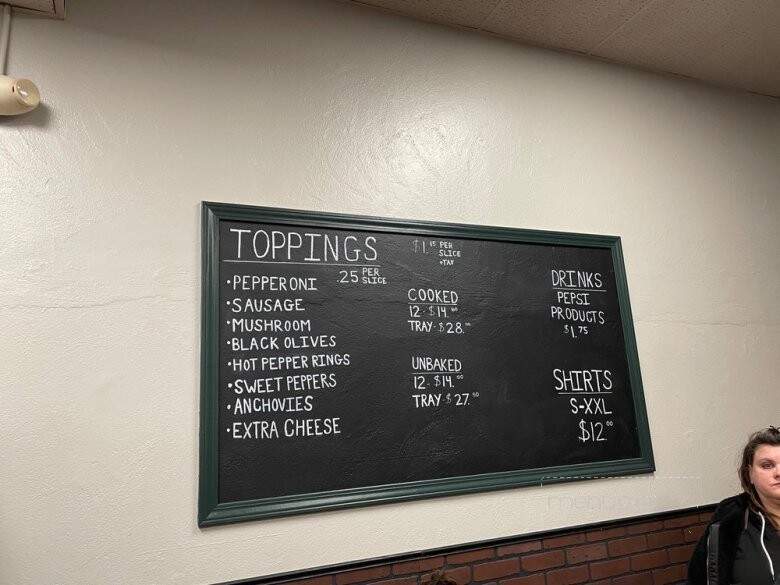 TOPPINGS
.25 PER SLICE
• PEPPERONI
• SAUSAGE
• MUSHROOM
• BLACK OLIVES
• HOT PEPPER RINGS
• SWEET PEPPERS
• ANCHOVIES
• EXTRA CHEESE
$1.15 PER
SLICE
+TAX
COOKED
12 - $14.00
TRAY - $28.00
UNBAKED
12 - $14.00
TRAY - $27.00
DRINKS
PEPSI
PRODUCTS
$1.75
SHIRTS
S-XXL
$12.00